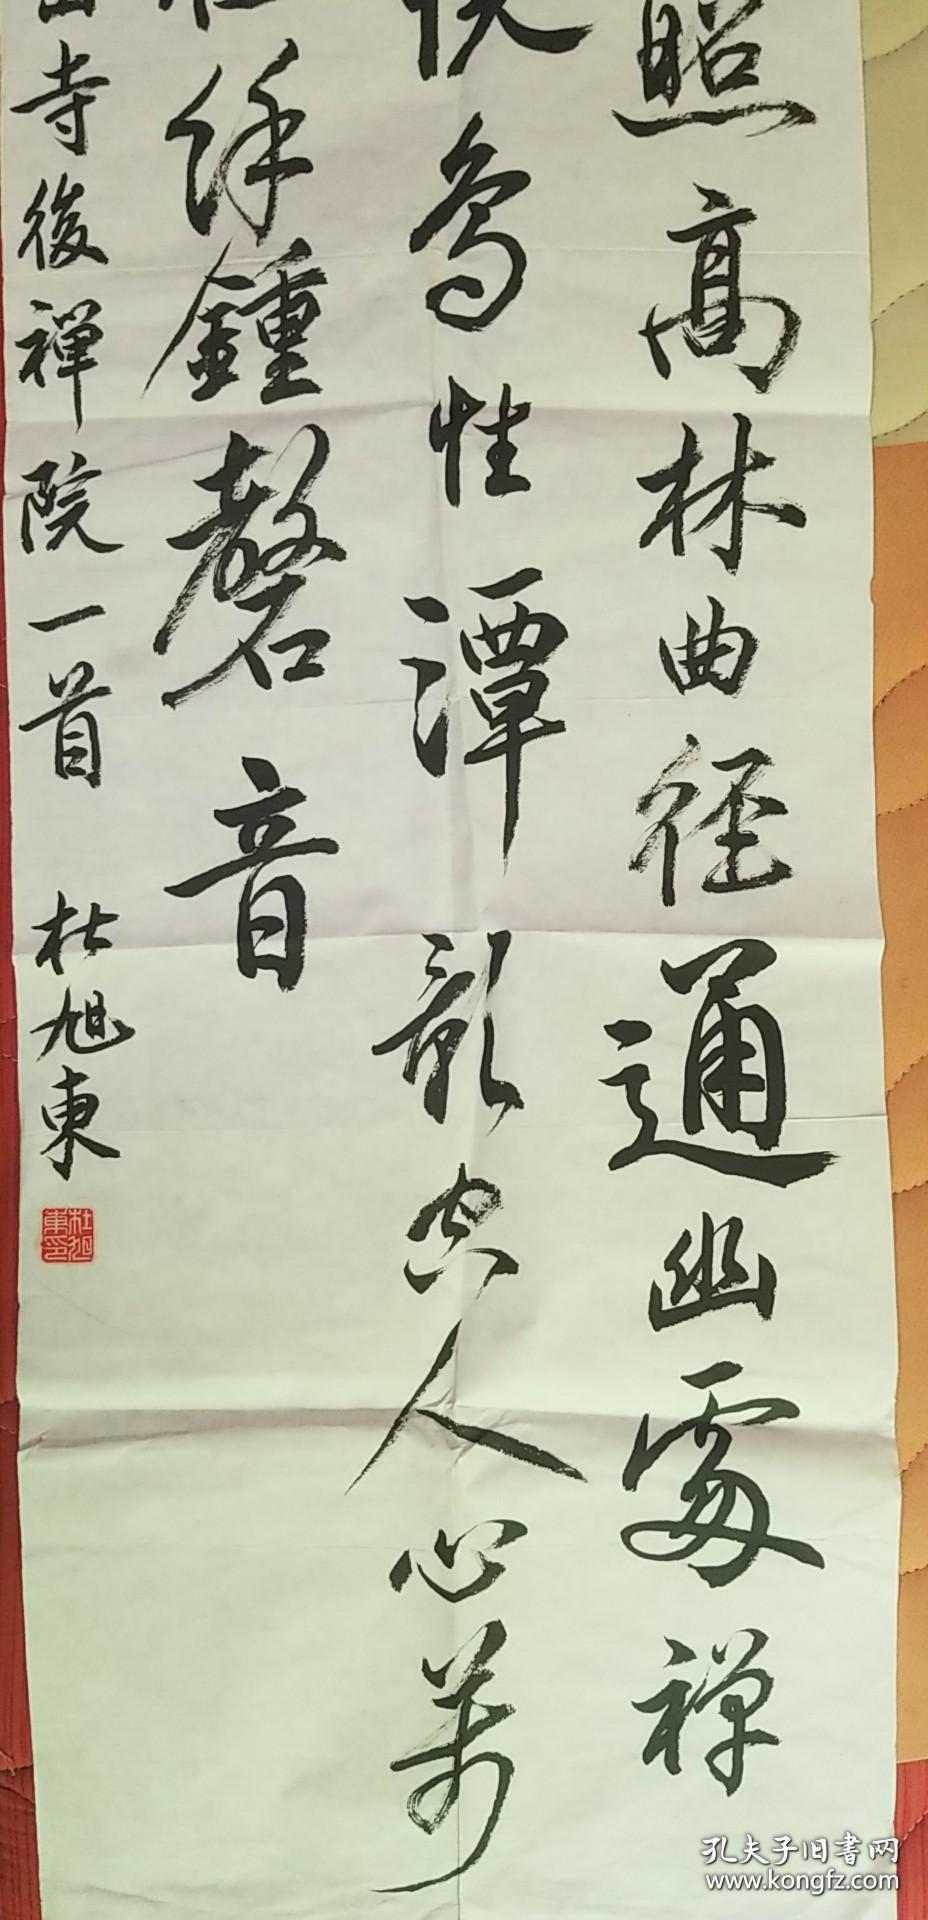 照高林曲径通幽處禅
悦鳥性潭影空人心萬
馀鍾磬音
山寺後禪院一首 杜旭東
杜旭東印
孔夫子旧書网
www.kongfz.com